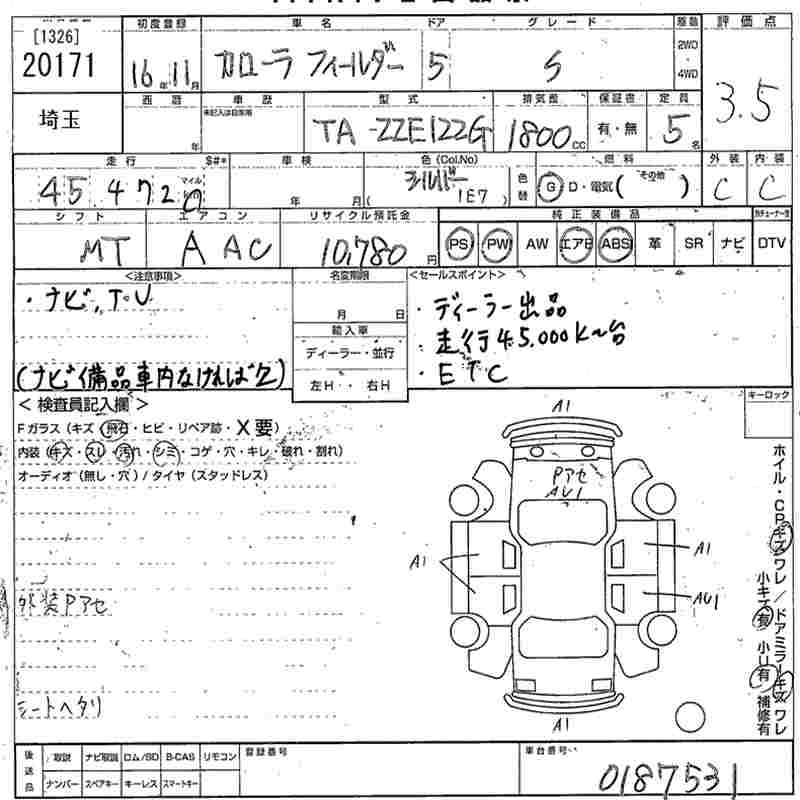 [1326]
20171
埼玉
初度登録
16年11月
車名
カローラ フィールダー
ドア
5
グレード
S
駆動
2WD
・
4WD
評価点
3.5
西暦
年
車歴
未記入は自家用
型式
TA-ZZE122G
排気量
1800 cc
保証書
有・無
定員
5名
走行
45472
マイル
S#*
車検
年 月
色(Col.No)
シルバー
( 1E7 )
色替
燃料
G D・電気( その他 )
外装
C
内装
C
シフト
MT
エアコン
AAC
リサイクル預託金
10,780円
純正装備品
PS PW AW エアB ABS 革 SR ナビ DTV
<注意事項>
・ナビ,TV
(ナビ備品車内なければ欠)
名変期限
月 日
輸入車
ディーラー・並行
左H・右H
<セールスポイント>
・ディーラー出品
・走行45,000K~台
・ETC
<検査員記入欄>
Fガラス(キズ・飛石・ヒビ・リペア跡・X要)
内装(キズ・スレ・汚れ・シミ・コゲ・穴・キレ・破れ・割れ)
オーディオ(無し・穴)/タイヤ(スタッドレス)
外装Pアセ
シートヘタリ
A1
Pアセ
AU1
A1
A1
AU1
A1
キーロック
ホイル・CPキズワレ/ドアミラーキズワレ
小キズ有 小U有 補修有
後送品
取説 ナビ取説 ロム/SD B-CAS リモコン
ナンバー スペアキー キーレス スマートキー
登録番号
車台番号
0187531